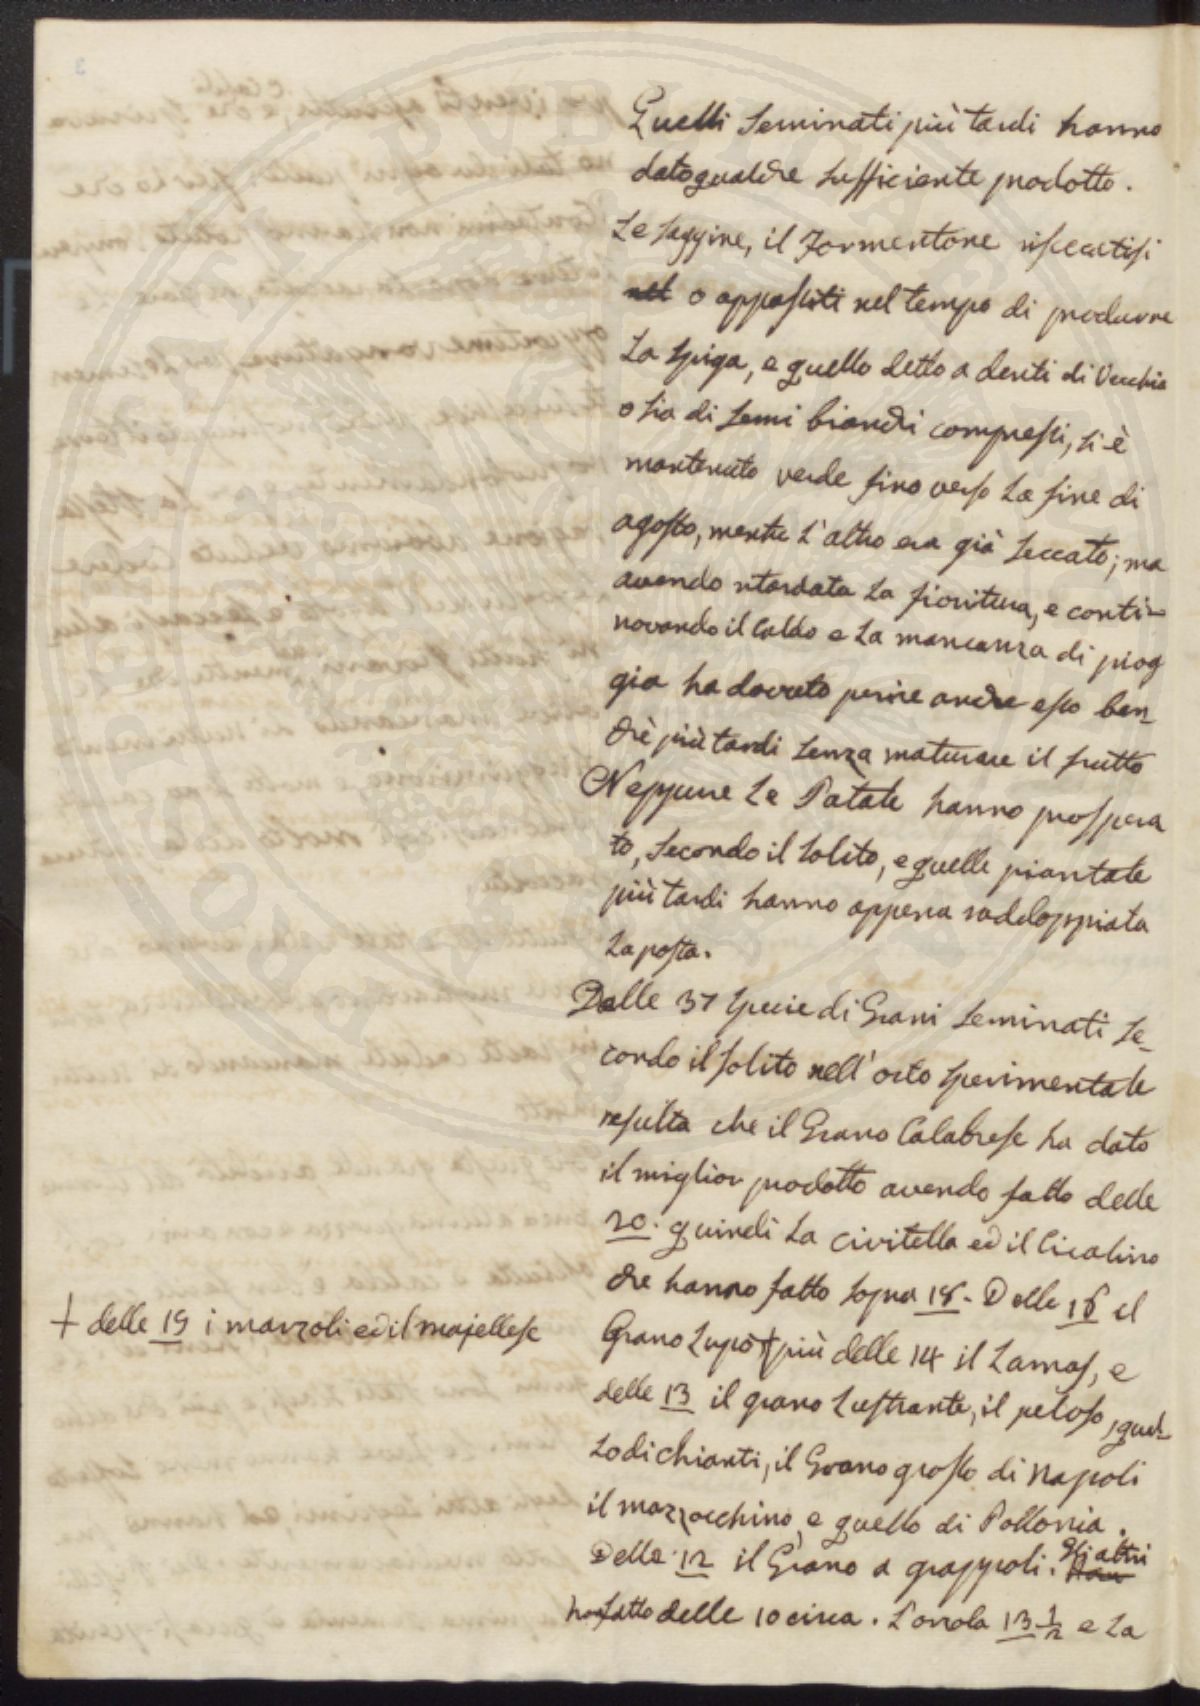 Quelli Seminati più tardi hanno
dato qualche sufficiente prodotto.
Le saggine, il Formentone riseccatisi
nel o appassiti nel tempo di produrre
La spiga, e quello detto a denti di Vecchia
o sia di semi bianchi compressi, si è
mantenuto verde fino verso La fine di
agosto, mentre l'altro era già Seccato; ma
avendo ritardata La fioritura, e conti-
novando il Caldo e La mancanza di piog
gia ha dovuto perire anche esso ben-
chè più tardi Senza maturare il frutto
Neppure Le Patate hanno prospera
to, Secondo il Solito, e quelle piantate
più tardi hanno appena raddoppiata
La posta.
Delle 37 Specie di Grani Seminati Se-
condo il solito nell'orto Sperimentale
resulta che il Grano Calabrese ha dato
il miglior prodotto avendo fatto delle
20. quindi La civitella ed il Cicalino
che hanno fatto sopra 18. Delle 16 il
+ delle 15 i marzoli ed il majellese
Grano Lupo + più delle 14 il Lamas, e
delle 13 il grano Lustrante, il peloso, quel-
Lo di chianti, il Grano grosso di Napoli
il mazzocchino, e quello di Pollonia.
Delle 12 il Grano a grappoli. Gli altri
han fatto delle 10 circa. L'orzola 13 1/2 e La